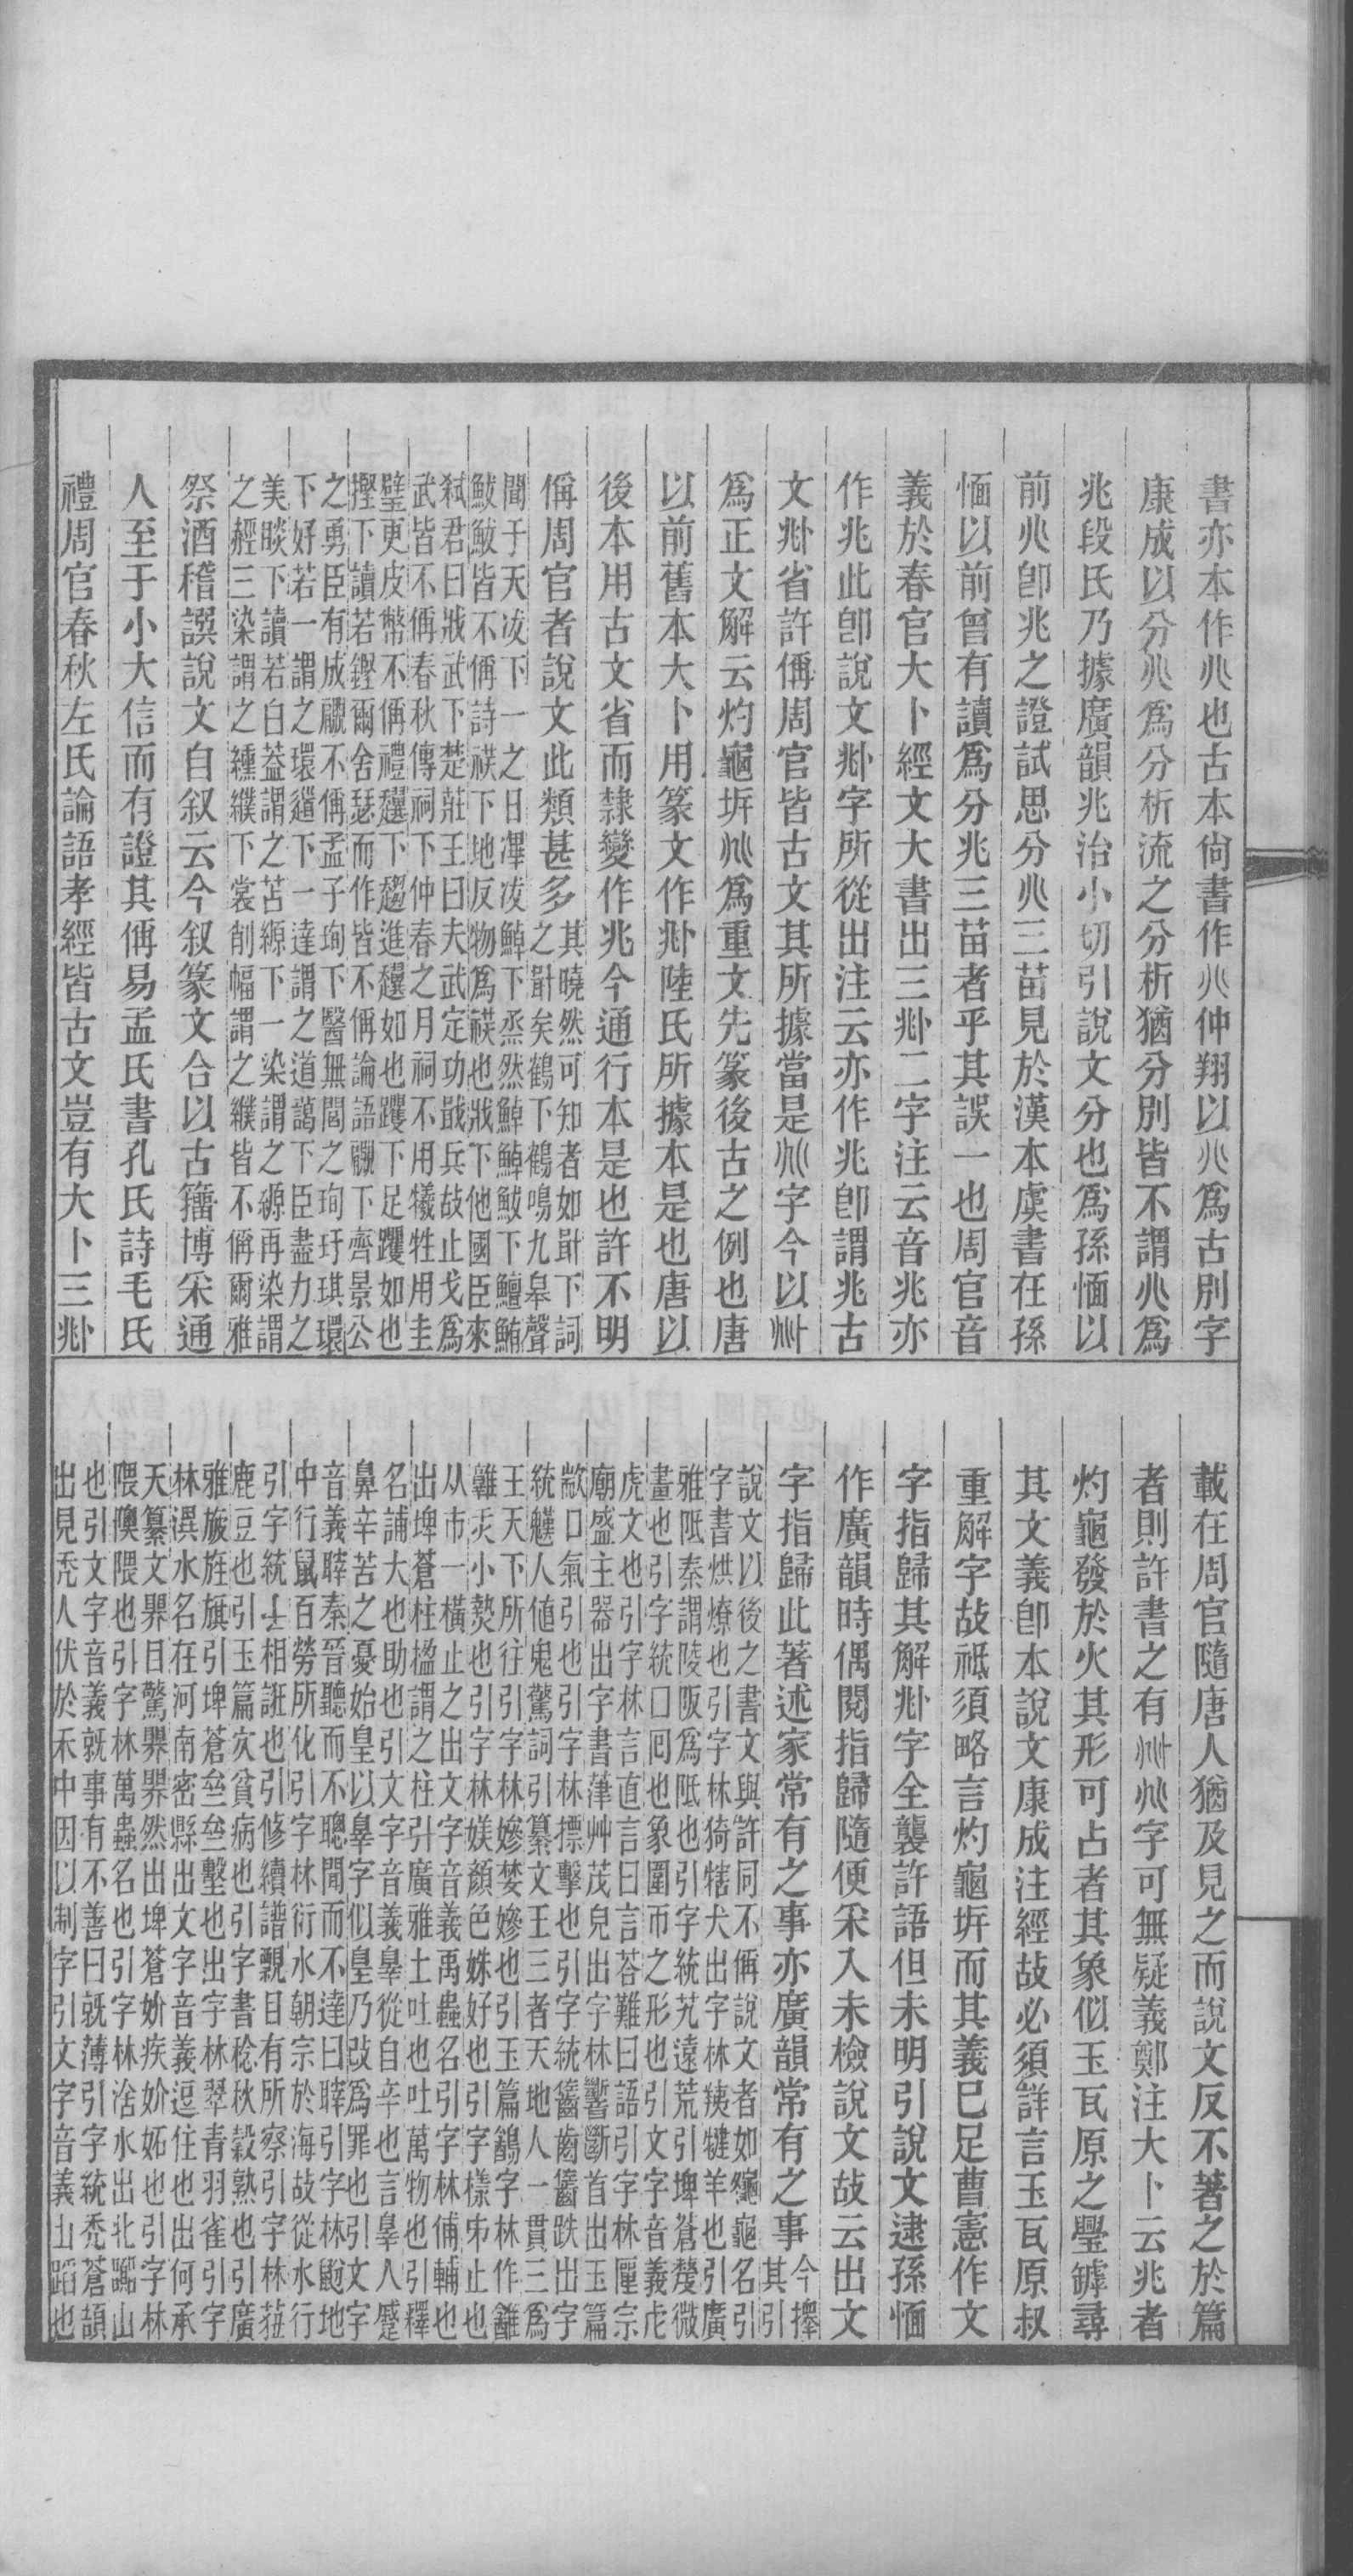 書亦本作𠔁也古本尙書作𠔁仲翔以𠔁爲古別字
康成以分𠔁爲分析流之分析猶分別皆不謂𠔁爲
兆段氏乃據廣韻兆治小切引說文分也爲孫愐以
前𠔁卽兆之證試思分𠔁三苗見於漢本虞書在孫
愐以前曾有讀爲分兆三苗者乎其誤一也周官音
義於春官大卜經文大書出三𠧞二字注云音兆亦
作兆此卽說文𠧞字所從出注云亦作兆卽謂兆古
文𠧞省許偁周官皆古文其所據當是𠧞字今以𠧞
爲正文解云灼龜坼兆爲重文先篆後古之例也唐
以前舊本大卜用篆文作𠧞陸氏所據本是也唐以
後本用古文省而隸變作兆今通行本是也許不明
偁周官者說文此類甚多
其曉然可知者如
下詞
之
矣鶴下鶴鳴九皋聲
聞于天冹下一之日滭冹鯙下烝然鯙鯙鮁下鱣鮪
鮁鮁皆不偁詩䄏下地反物爲䄏也戕下他國臣來
弒君曰戕武下楚莊王曰夫武定功戢兵故止戈爲
武皆不偁春秋傳祠下仲春之月祠不用犧牲用圭
璧更皮幣不偁禮
下趨進
如也躩下足躩如也
摼下讀若鏗爾舍瑟而作皆不偁論語
下齊景公
之勇臣有成
不偁孟子珣下醫無閭之珣玗琪環
下好若一謂之環道下一達謂之道藹下臣盡力之
美睒下讀若白蓋謂之苫縓下一染謂之縓再染謂
之經三染謂之纁纀下裳削幅謂之纀皆不偁爾雅
祭酒稽譔說文自叙云今叙篆文合以古籒博采通
人至于小大信而有證其偁易孟氏書孔氏詩毛氏
禮周官春秋左氏論語孝經皆古文豈有大卜三𠧞
載在周官隨唐人猶及見之而說文反不著之於篇
者則許書之有𠧞兆字可無疑義鄭注大卜云兆者
灼龜發於火其形可占者其象似玉瓦原之璺罅尋
其文義卽本說文康成注經故必須詳言玉瓦原叔
重解字故祗須略言灼龜坼而其義巳足曹憲作文
字指歸其解𠧞字全襲許語但未明引說文逮孫愐
作廣韻時偶閱指歸隨便采入未檢說文故云出文
字指歸此著述家常有之事亦廣韻常有之事
今㩀
其引
說文以後之書文與許同不偁說文者如
龜名引
字書烘燎也引字林猗犗犬出字林羠犍羊也引廣
雅阺秦謂陵阪爲阺也引字統艽遠荒引埤蒼
微
畫也引字統囗囘也象圍帀之形也引文字音義虍
虎文也引字林言直言曰言荅難曰語引字林
宗
廟盛主器出字書葏艸茂皃出字林
斷首出玉篇
歊口氣引也引字林摽擊也引字統
齒
跌出字
統魕人値鬼驚詞引纂文王三者天地人一貫三爲
王天下所往引字林嫪婪嫪也引玉篇鷭字林作雝
雝
小熱也引字林媄顏色姝好也引字樣𠂔止也
从巿一橫止之出文字音義禹蟲名引字林俌輔也
出埤蒼柱楹謂之柱引廣雅土吐也吐萬物也引釋
名誧大也助也引文字音義辠從自辛也言辠人蹙
鼻辛苦之憂始皇以辠字似皇乃改爲罪也引文字
音義聹秦晉聽而不聰聞而不達曰聹引字林䶈地
中行鼠百勞所化引字林衍水朝宗於海故從水行
引字統
相誑也引修續譜覼目有所察引字林菈
鹿豆也引玉篇㝌貧病也引字書稔秋穀熟也引廣
雅旇旌旗引埤蒼垒垒墼也出字林翠青羽雀引字
林潩水名在河南密縣出文字音義逗住也出何承
天纂文瞿目驚瞿瞿然出埤蒼妎疾妎妬也引字林
隈隩隈也引字林萬蟲名也引字林浛水出北囂山
也引文字音義就事有不善曰就薄引字統禿蒼頡
出見禿人伏於禾中因以制字引文字音義
蹈也